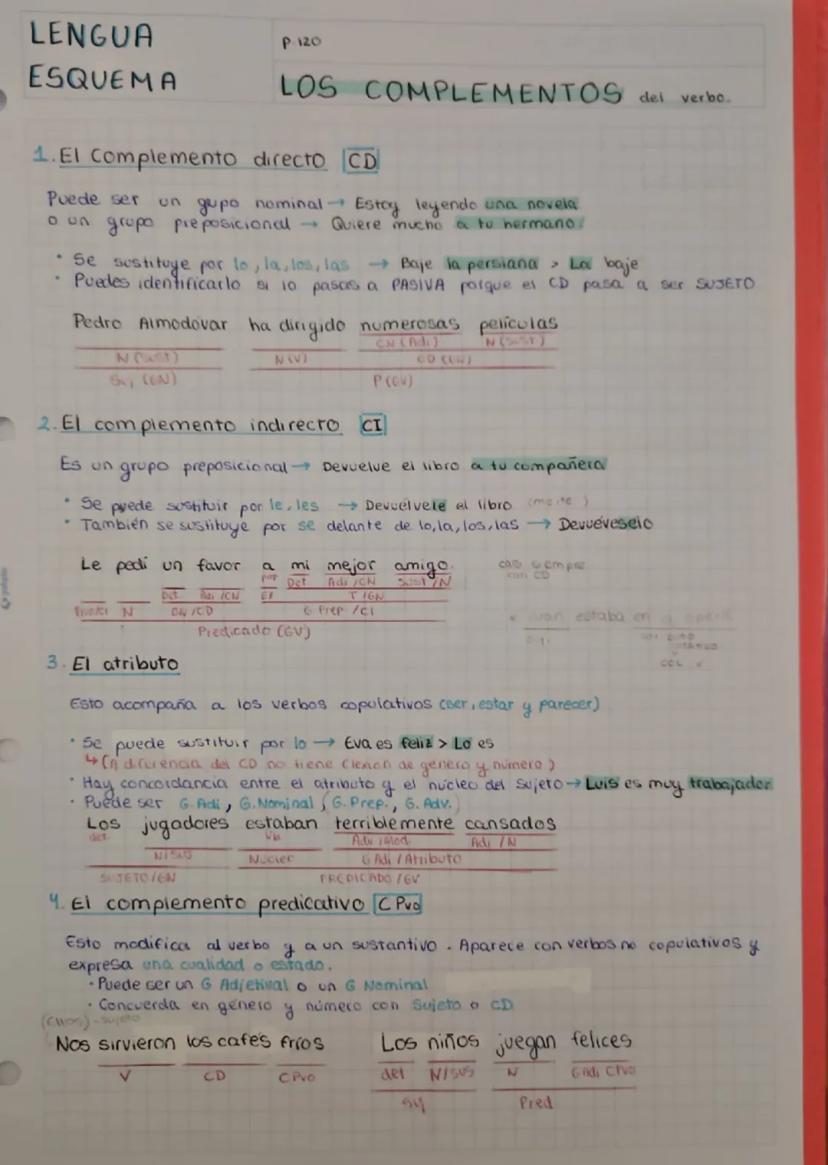 LENGUA
ESQUEMA
P. 120
LOS COMPLEMENTOS del verbo.
1. El Complemento directo CD
Puede ser un gupo nominal → Estoy leyendo una novela
o un grupo preposicional → Quiere mucho a tu hermano.
• Se sustituye por lo, la, los, las → Baje la persiana > La baje
• Puedes identificarlo si lo pasas a PASIVA porque el CD pasa a ser SUJETO
Pedro Almodovar ha dirigido numerosas películas
CN (Adj) N (sust)
N (sust) N (V) CD (GN)
Suj (GN) P (GV)
2. El complemento indirecto CI
Es un grupo preposicional → Devuelve el libro a tu compañera
• Se puede sustituir por le, les → Devuélvele el libro
• También se sustituye por se delante de lo, la, los, las → Devuéveselo
Le pedí un favor a mi mejor amigo.
casi siempre
con CD
Det Adj /CN Sust /N
Det /CN E/ T /GN
N GN /CD G Prep /CI
Predicado (GV)
estaba en
3. El atributo
Esto acompaña a los verbos copulativos (ser, estar y parecer)
• Se puede sustituir por lo → Eva es feliz > Lo es
↳ (A diferencia del CD no tiene flexión de género y número)
• Hay concordancia entre el atributo y el nucleo del sujeto → Luis es muy trabajador
• Puede ser G. Adj, G. Nominal, G. Prep., G. Adv.
Los jugadores estaban terriblemente cansados
det. Vb Adv /Mod. Adj /N
N/SUS Núcleo G Adj / Atributo
SUJETO/GN PREDICADO /GV
4. El complemento predicativo C Pvo
Esto modifica al verbo y a un sustantivo. Aparece con verbos no copulativos y
expresa una cualidad o estado.
• Puede ser un G Adjetival o un G Nominal
• Concuerda en género y número con Sujeto o CD
(Ellos) - sujeto
Nos sirvieron los cafés fríos Los niños juegan felices
V CD CPvo det N/sus N G Adj CPvo
Suj Pred